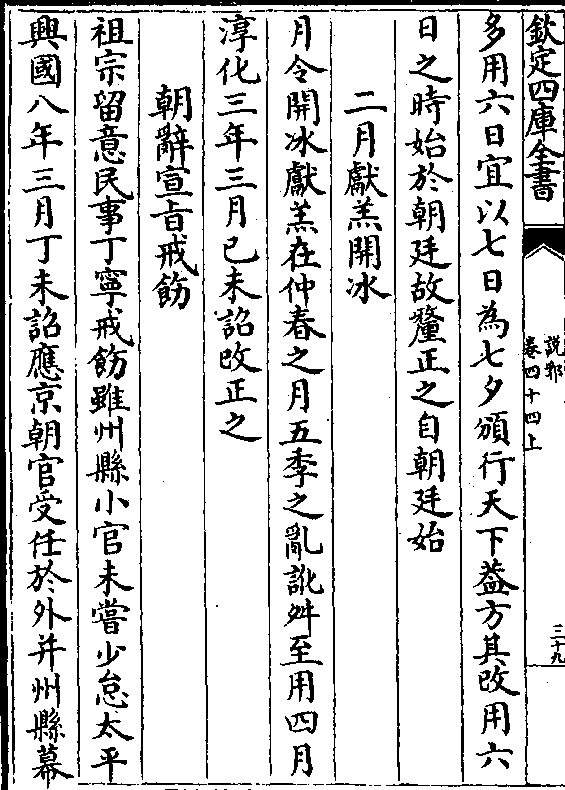 欽定四庫全書
說郛
卷四十四上
三十九
多用六日宜以七日為七夕頒行天下葢方其改用六
日之時始於朝廷故釐正之自朝廷始
二月獻羔開冰
月令開冰獻羔在仲春之月五季之亂訛舛至用四月
淳化三年三月已未詔改正之
朝辭宣旨戒飭
祖宗留意民事丁寧戒飭雖州縣小官未嘗少怠太平
興國八年三月丁未詔應京朝官受任於外并州縣幕